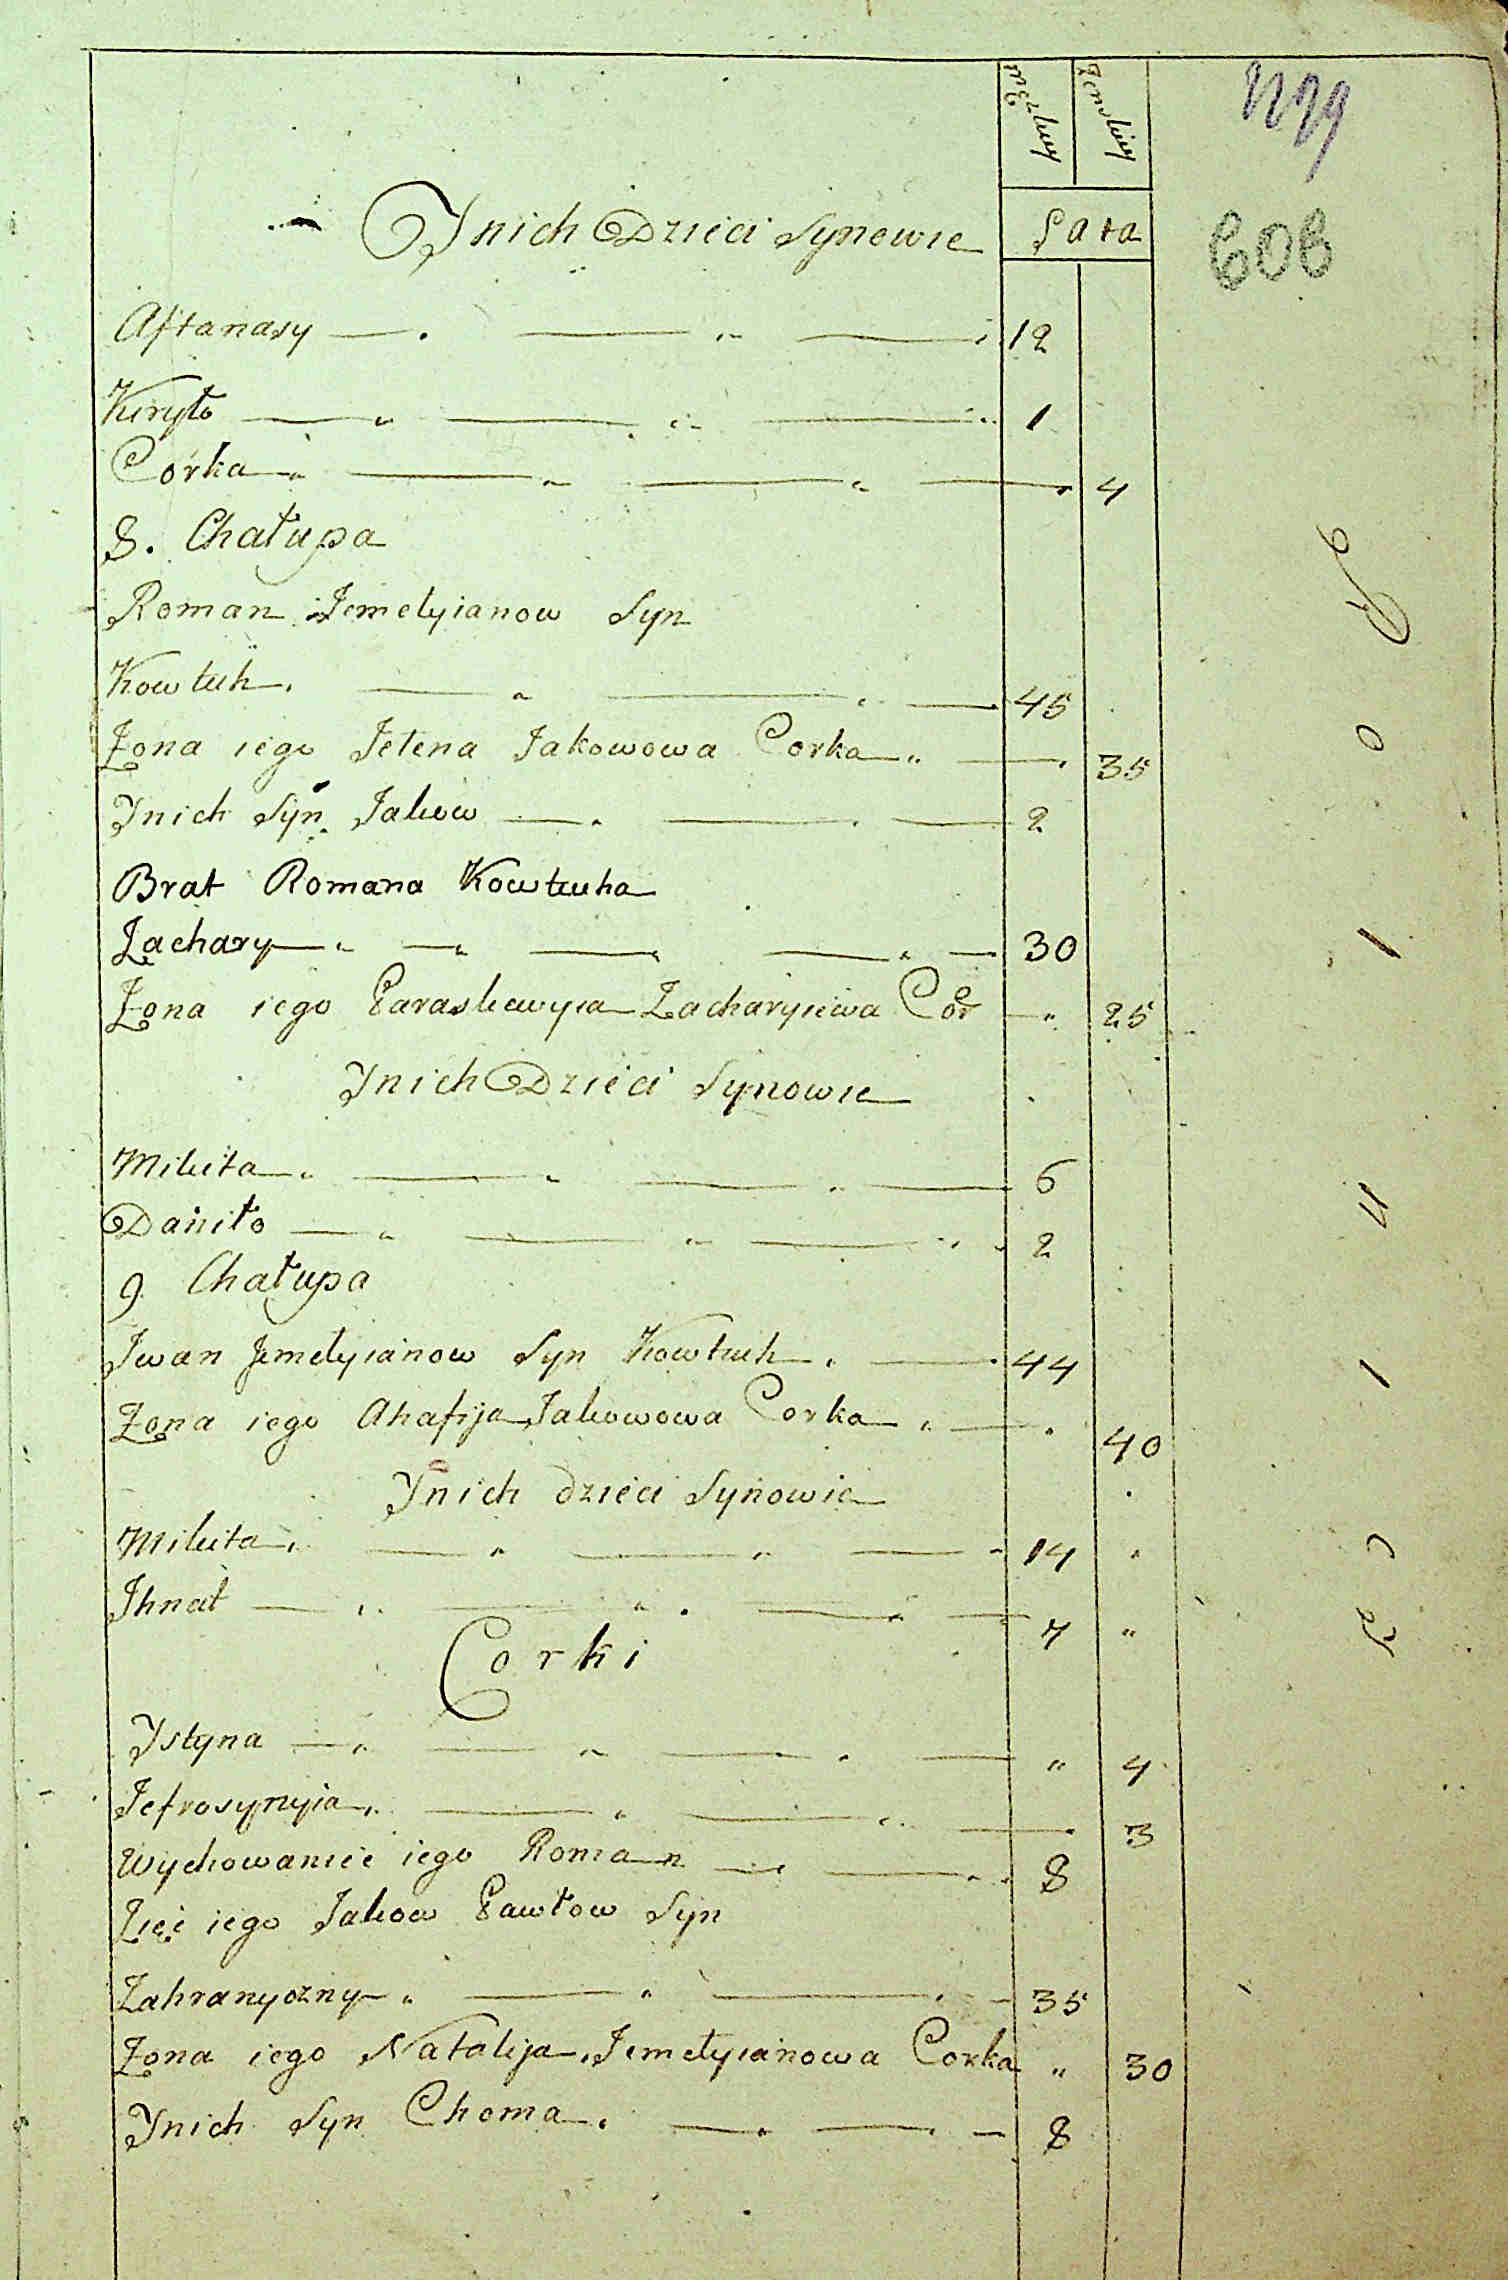 Męzkiey Zenskiey
Ynich Dzieci Synowie Lata
606
Aftanasy 12
Kiryło 1
Corka 4
8. Chałupa
Roman Jemelyianow Syn
Kowtuh 45
Zona iego Jelena Jakowowa Corka 35
Ynich Syn Jakow 2
Brat Romana Kowtuha
Zachary 30
Zona iego Paraskewyia Zacharyiewa Cor 25
Ynich Dzieci Synowie
Mikita 6
Daniło 2
9 Chałupa
Iwan Jemelyianow Syn Kowtuh 44
Zona iego Ahafija Jakowowa Corka 40
Ynich dzieci Synowie
Mikita 14
Ihnat 7
Corki
Ystyna 4
Jefrosynyia 3
Wychowaniec iego Roman 8
Zięć iego Jakow Pawłow Syn
Zahranyczny 35
Zona iego Natalija Jemelyianowa Corka 30
Ynich Syn Choma 8